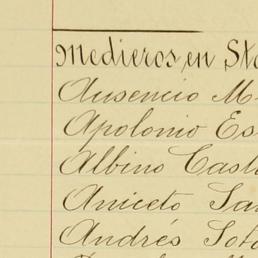 Medieros, en Sta
Ausencio M
Apolonio Es
Albino Cast
Aniceto Sa
Andrés Soto